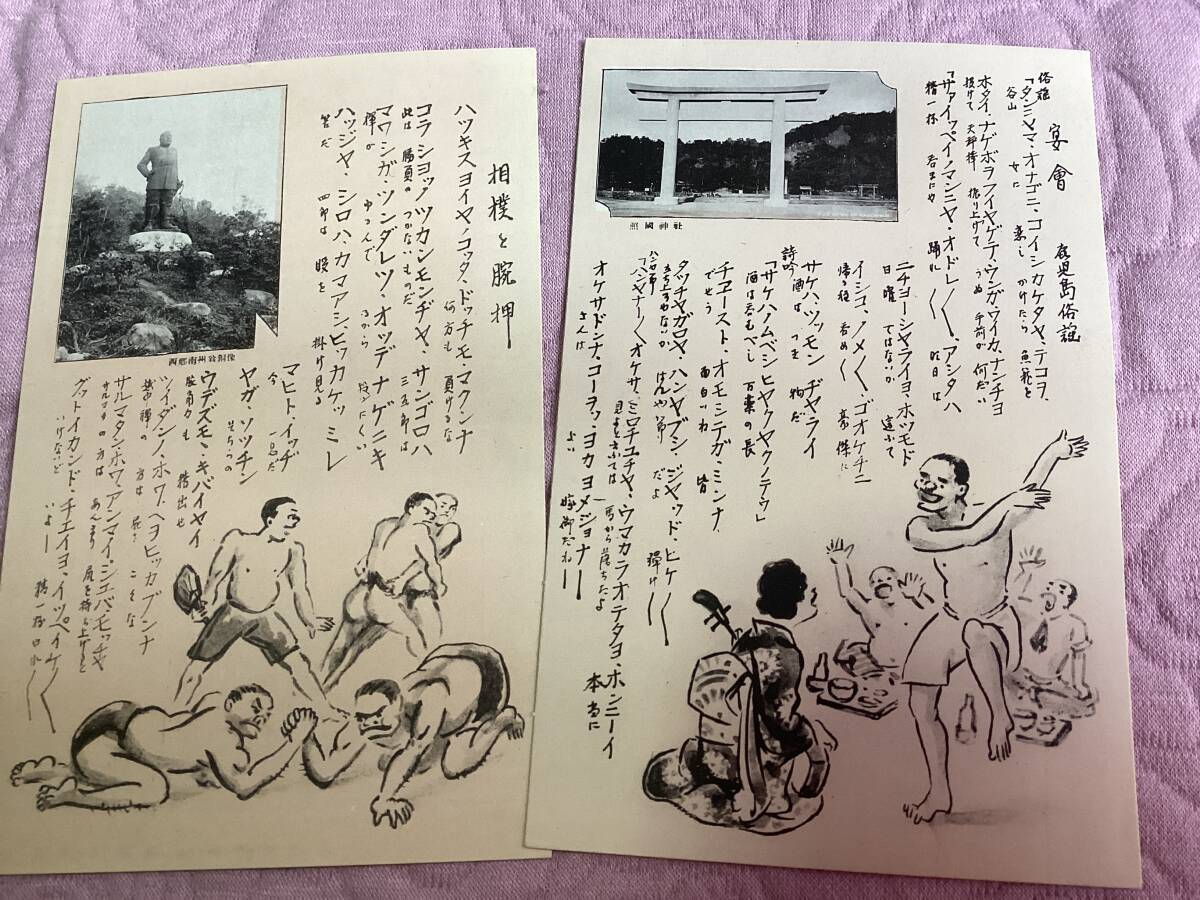 宴會
鹿児島俗謡
俗謡
「タンニヤマ・オナゴニ、コイシカケタヤ、テコヲ、
谷山 女に 恋し かけたら
ホタイ・ナゲボラフイヤゲテ・ウンガワイカ、ナンチヨ
投げて 天秤棒 振り上げて うぬ 手前が 何だい
「サアイツペイノマンニヤ・オドレ〱、アシタハ
精一杯 呑まにや 踊れ〱 明日は
ニチヨーシヤライヨ、ホツモド
日曜 ではないか 遠ふて
イシコ、ノメ〱、ゴオケチニ
帰る後 呑め〱 豪傑に
サケハ・ツッモン ヂヤライ
詩吟 酒は つき 物だ
「サケハ・ノムベシ ヒヤクヤクノテウ」
酒は呑むべし 百薬の長
チヱースト・オモシテガ・ミンナ
でせう 面白いね 皆
タッチヤガロヤ、ハンヤブシ・ジヤッド、ヒケ〱
立ち上らぬか はんや節 だよ 弾け〱
ハンヤ節
「ハンヤナー〱オケサ、ミロチユチヤ、ウマカラオテタヨ、ホンニーイ
見ると云ふては 馬から落ちたよ 本当に
オケサドンナ・コーヲッ・ヨカヨメジョナー
さんは よい 嫁御だね
照國神社
相撲と腕押
ハツキスヨイヤ、ノコッタ、ドッチモ・マクンナ
何方も 負けるな
コラ ショッノツカンモンヂヤ、サンゴロハ
此は 勝負の つかないものだ 三五郎は
マワシガ・ツンダレツ・オッデ ナゲニキ
褌が ゆつんで ゐから 投にくい
ハッジヤ、シロハ、カマアシヒッカケッミレ
筈だ 四郎は 股を 掛け見る
マヒト、イッヂ
今 一息だ
ヤガ・ソッチン
そちらの
ウデズモ・キバイヤイ
腕角力も 精出せ
ツイダンノ・ホワ、ヘヨヒッカブンナ
越中褌の 方は 屁こくな
サルマタンホワ、アンマイ・ジエバ・モッチヤ
サルマタの方は あんまり 尻を持ち上げると
グットイカンド・チエイヨ、イッペイケ〱
いけないど いよー 精一杯
西郷南州翁銅像